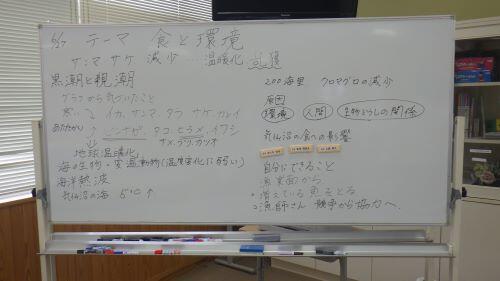 6/7 テーマ 食と環境
サンマ サケ 減少 … 温暖化 乱獲
黒潮と親潮
グラフから気づいたこと
寒い イカ、サンマ、タラ サケ、カレイ
あたたかい タコ ヒラメ、イワシ
サメ、ブリ、カツオ
地球温暖化
海の生物…変温動物(温度変化に弱い)
海洋熱波
気仙沼の海 5℃↑
200海里 クロマグロの減少
原因
環境 人間 生物どうしの関係
気仙沼の食への影響
自分にできること
漁業面から
・増えている魚をとる
・漁師さん 競争から協力へ